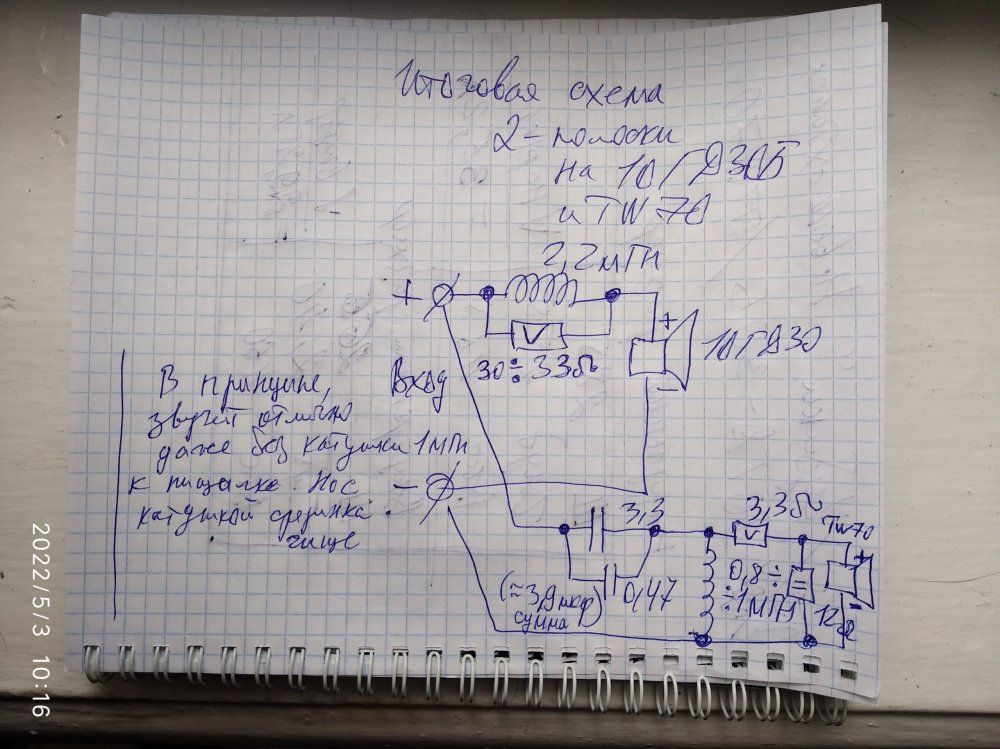 Итоговая схема
2-полоски
на 10ГД30Б
и TW-70
2,2мГн
+
30÷33Ω
+
-
10ГД30
Вход
В принципе,
звучит отлично
даже без катушки 1мГн
к пищалке. Но с
катушкой срединка
чище
-
3,3
0,47
(≈3,9мкф)
сумма
3,3Ω
TW70
0,8÷
÷1мГн
+
-
12Ω
2022/5/3 10:16